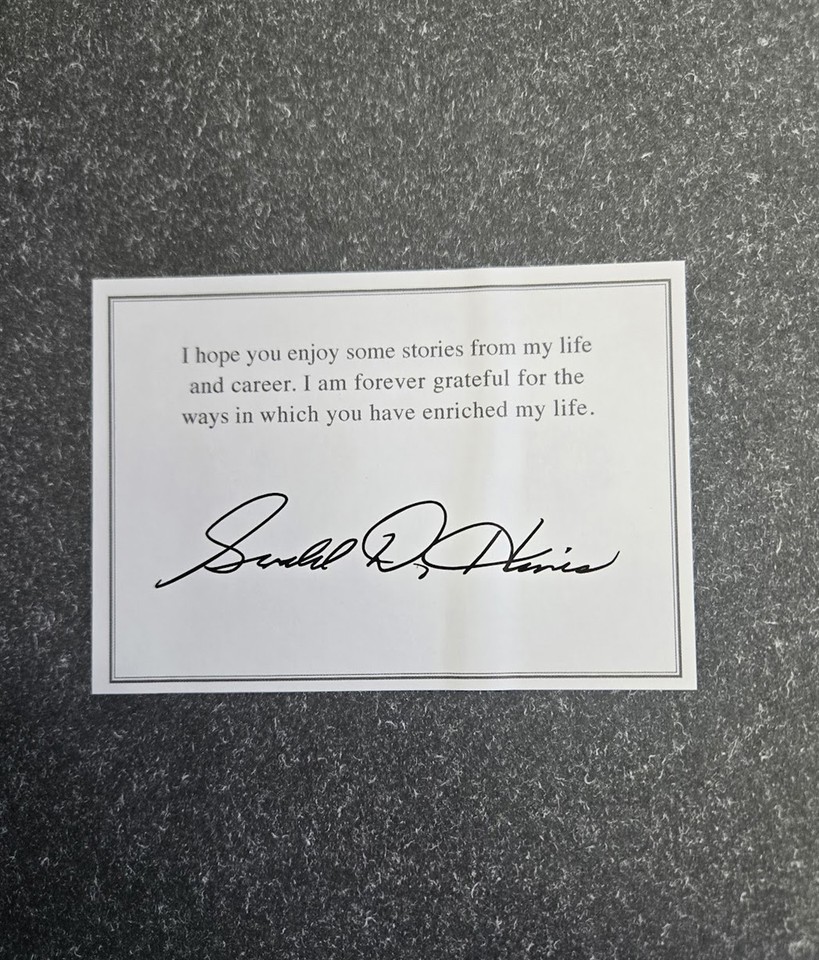 I hope you enjoy some stories from my life
and career. I am forever grateful for the
ways in which you have enriched my life.